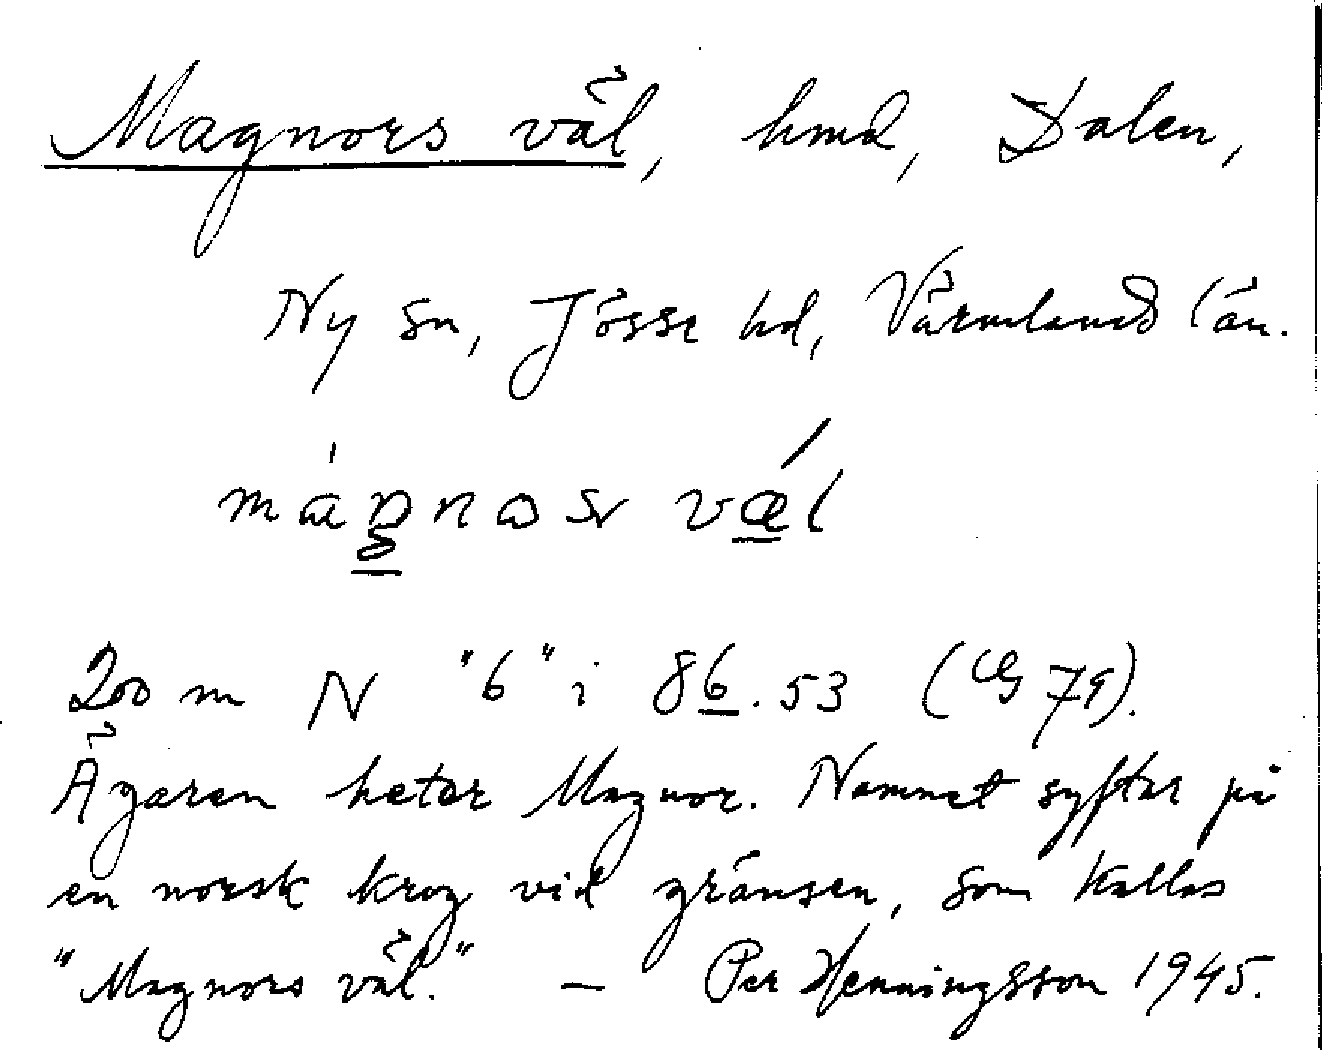 Magnors väl, hmd, Dalen,
Ny sn, Jösse hd, Värmlands län.
200 m N "6" i 86.53 (G 79).
Ägaren heter Magnor. Namnet syftar på
en norsk krog vid gränsen, som kallas
"Magnors väl." — Per Henningsson 1945.